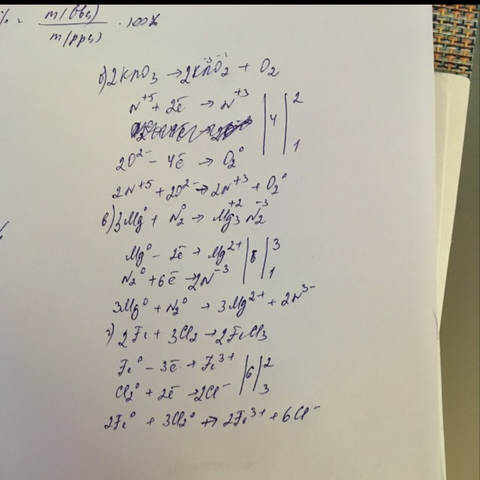 % = m(вещ) / m(р-ра) · 100%
б) 2KNO3 → 2KNO2 + O2
N+5 + 2ē → N+3 | 4 | 2
2O2- - 4ē → O2^0 | 1
2N+5 + 2O2- → 2N+3 + O2^0
в) 3Mg^0 + N2^0 → Mg3+2 N2-3
Mg^0 - 2ē → Mg2+ | 6 | 3
N2^0 + 6ē → 2N-3 | 1
3Mg^0 + N2^0 → 3Mg2+ + 2N3-
г) 2Fe + 3Cl2 → 2FeCl3
Fe^0 - 3ē → Fe3+ | 6 | 2
Cl2^0 + 2ē → 2Cl- | 3
2Fe^0 + 3Cl2^0 → 2Fe3+ + 6Cl-